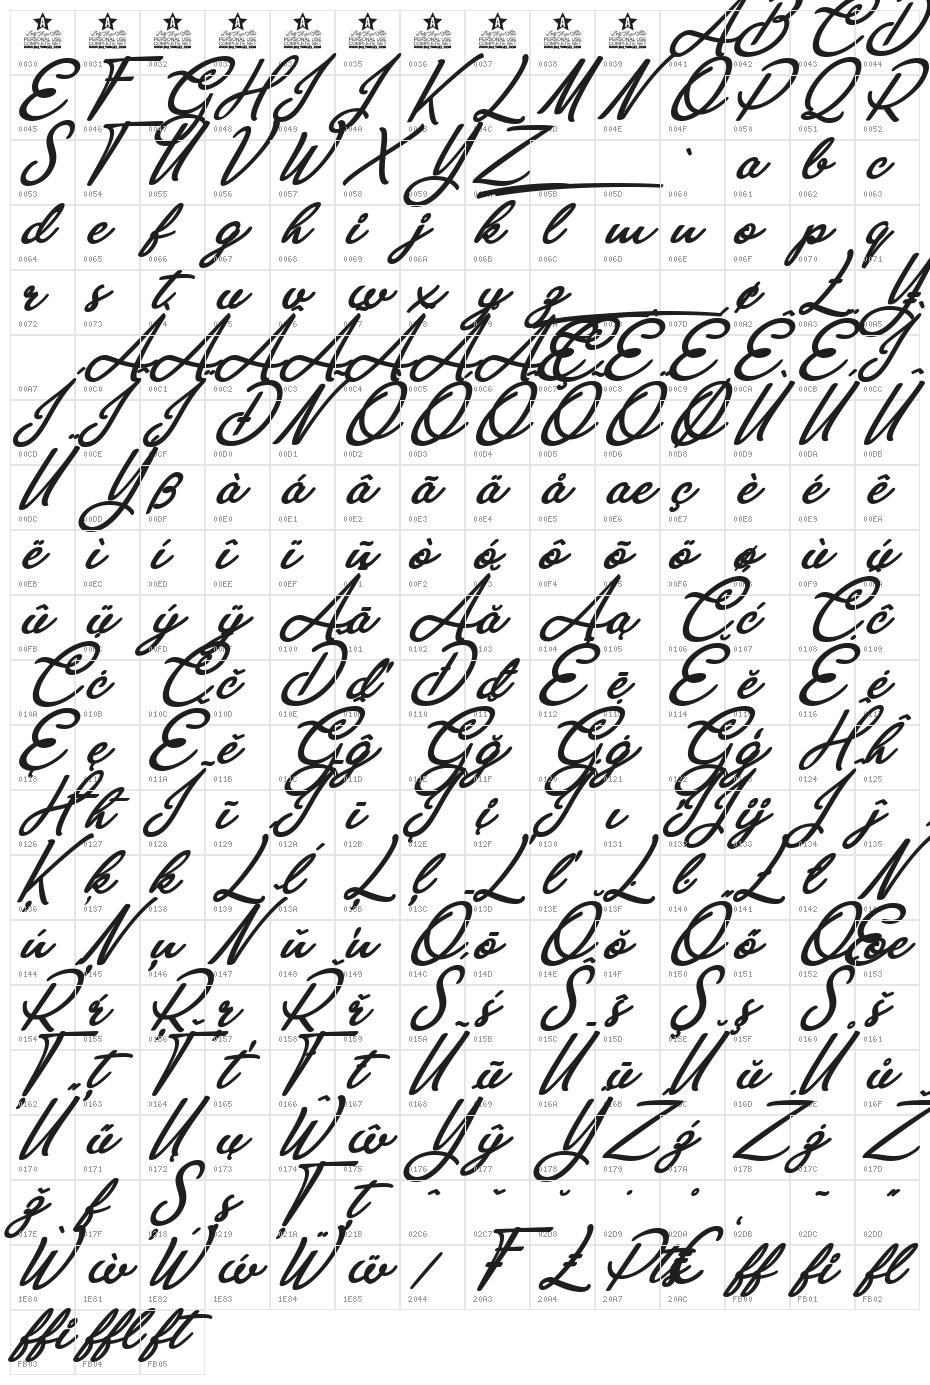 PERSONAL USE PERSONAL USE PERSONAL USE PERSONAL USE PERSONAL USE PERSONAL USE PERSONAL USE PERSONAL USE PERSONAL USE PERSONAL USE
COMPLETE SET COMPLETE SET COMPLETE SET COMPLETE SET COMPLETE SET COMPLETE SET COMPLETE SET COMPLETE SET COMPLETE SET COMPLETE SET
A B C D
0030 0031 0032 0035 0036 0037 0038 0039 0041 0042 0043 0044
E F G H I J K L M N O P Q R
0045 0046 0047 0048 0049 004A 004B 004C 004D 004E 004F 0050 0051 0052
S T U V W X Y Z ` a b c
0053 0054 0055 0056 0057 0058 0059 005B 005D 0060 0061 0062 0063
d e f g h i j k l m n o p q
0064 0065 0066 0067 0068 0069 006A 006B 006C 006D 006E 006F 0070 0071
r s t u v w x y z ¢ £ ¥
0072 0073 0074 0075 0076 0077 0078 0079 007D 00A2 00A3 00A5
À Á Â Ã Ä Å Æ Ç È É Ê Ë Ì
00A7 00C0 00C1 00C2 00C3 00C4 00C5 00C6 00C7 00C8 00C9 00CA 00CB 00CC
Í Î Ï Ð Ñ Ò Ó Ô Õ Ö Ø Ù Ú Û
00CD 00CE 00CF 00D0 00D1 00D2 00D3 00D4 00D5 00D6 00D8 00D9 00DA 00DB
Ü Ý ß à á â ã ä å æ ç è é ê
00DC 00DD 00DF 00E0 00E1 00E2 00E3 00E4 00E5 00E6 00E7 00E8 00E9 00EA
ë ì í î ï ñ ò ó ô õ ö ø ù ú
00EB 00EC 00ED 00EE 00EF 00F2 00F4 00F6 00F9
û ü ý ÿ Ā ā Ă ă Ą ą Ć ć Ĉ ĉ
00FB 00FD 0100 0101 0102 0103 0104 0105 0106 0107 0108 0109
Ċ ċ Č č Ď ď Đ đ Ē ē Ĕ ĕ Ė ė
010A 010B 010C 010D 010E 0110 0112 0113 0114 0116
Ę ę Ě ě Ĝ ĝ Ğ ğ Ġ ġ Ģ ģ Ĥ ĥ
0118 011A 011B 011D 011F 0121 0124 0125
Ħ ħ Ĩ ĩ Ī ī Į į İ ı Ĳ ĳ Ĵ ĵ
0126 0127 0128 0129 012A 012B 012E 012F 0130 0131 0133 0134 0135
Ķ ķ ĸ Ĺ ĺ Ļ ļ Ľ ľ Ŀ ŀ Ł ł Ń
0136 0137 0138 0139 013A 013B 013C 013D 013E 013F 0140 0141 0142
ń Ņ ņ Ň ň ŉ Ō ō Ŏ ŏ Ő ő Œ œ
0144 0145 0146 0147 0148 0149 014C 014D 014E 014F 0150 0151 0152 0153
Ŕ ŕ Ŗ ŗ Ř ř Ś ś Ŝ ŝ Ş ş Š š
0154 0155 0156 0157 0158 0159 015A 015B 015C 015D 015E 015F 0160 0161
Ţ ţ Ť ť Ŧ ŧ Ũ ũ Ū ū Ŭ ŭ Ů ů
0162 0163 0164 0165 0166 0167 0168 0169 016A 016B 016D 016F
Ű ű Ų ų Ŵ ŵ Ŷ ŷ Ÿ Ź ź Ż ż Ž
0170 0171 0172 0173 0174 0175 0176 0177 0178 0179 017A 017B 017C 017D
ž ſ Ș ș Ț ț ˆ ˇ ˘ ˙ ˚ ˛ ˜ ˝
017E 017F 0218 0219 021A 021B 02C6 02C7 02D8 02D9 02DA 02DB 02DC 02DD
Ẁ ẁ Ẃ ẃ Ẅ ẅ ⁄ ₣ ₤ ₧ € ff fi fl
1E80 1E81 1E82 1E83 1E84 1E85 2044 20A3 20A4 20A7 20AC FB00 FB01 FB02
ffi ffl ft
FB03 FB04 FB05